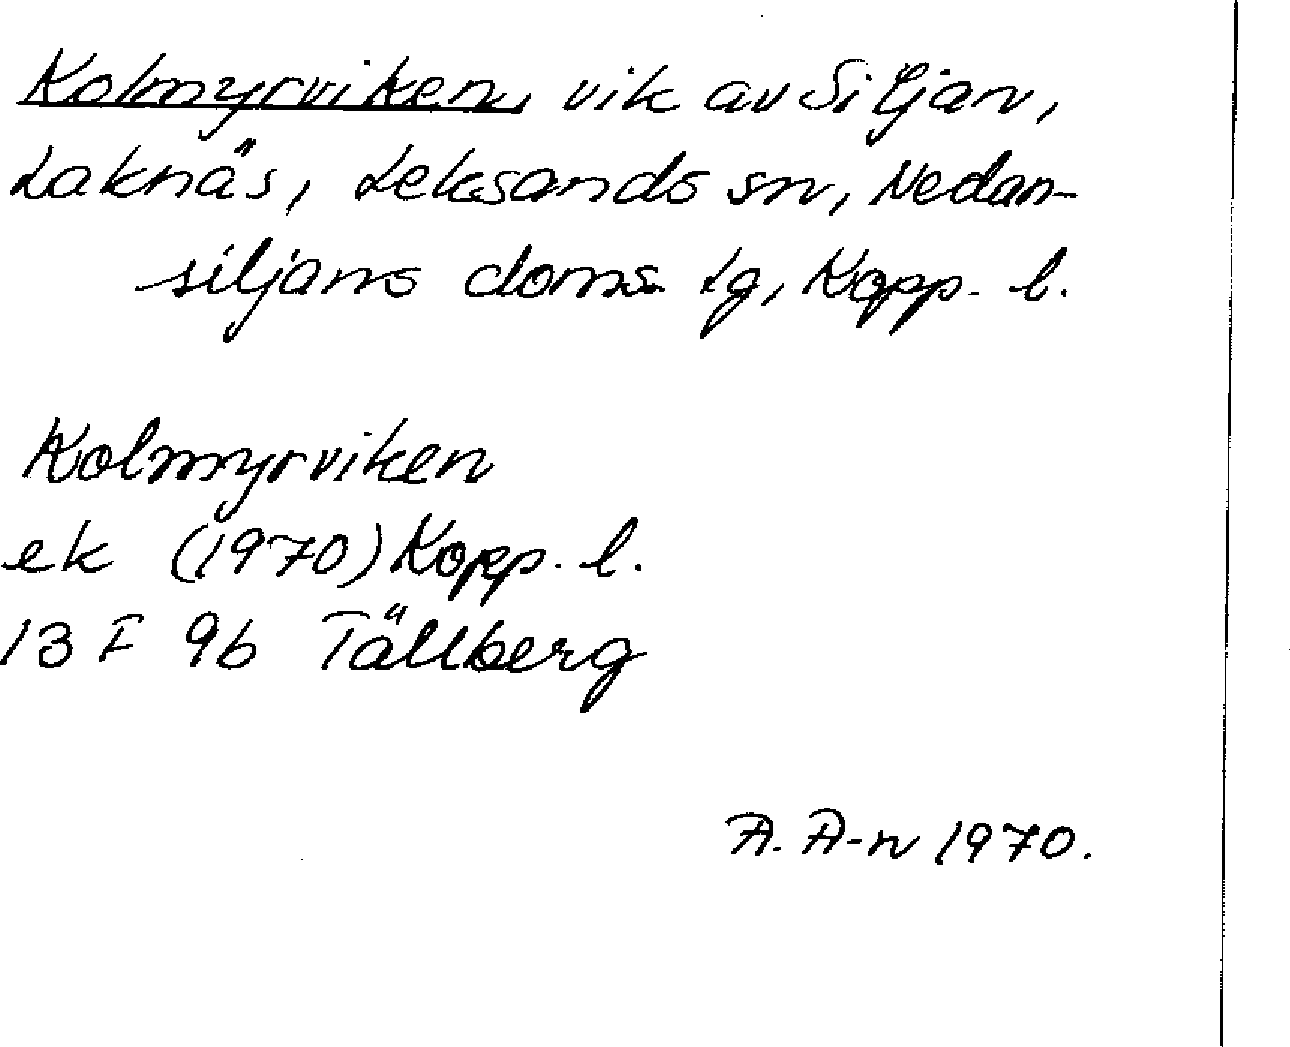 Kolmyrviken, vik av Siljan,
Laknäs, Leksands sn, Nedan-
siljans doms. lg, Kopp. l.
Kolmyrviken
ek (1970) Kopp. l.
13 F 9b Tällberg
A. A-n 1970.